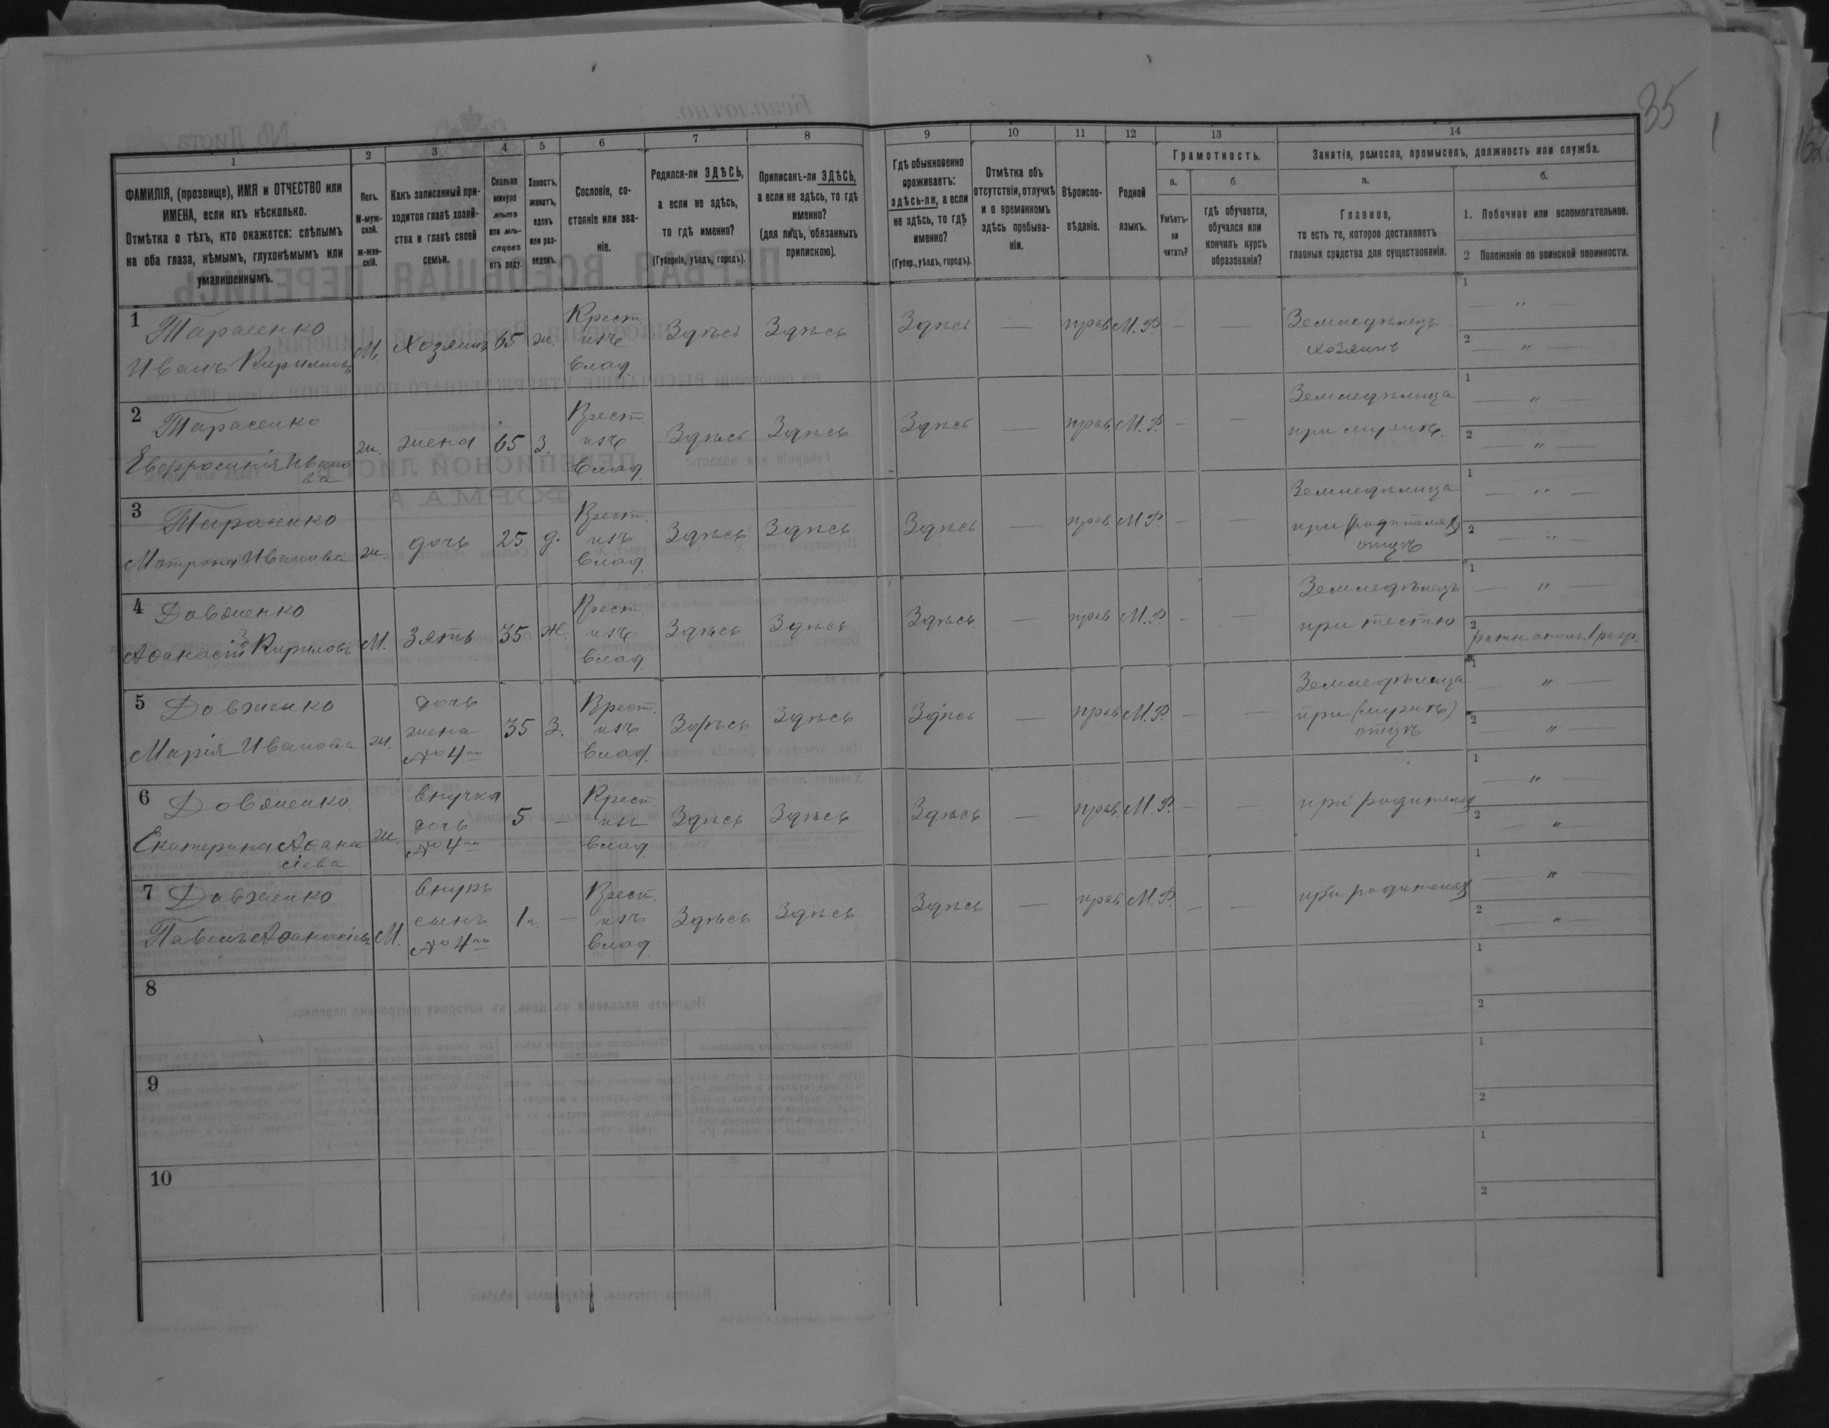 35
1 2 3 4 5 6 7 8 9 10 11 12 13 14
ФАМИЛІЯ, (прозвище), ИМЯ и ОТЧЕСТВО или
ИМЕНА, если ихъ нѣсколько.
Отмѣтка о тѣхъ, кто окажется: слѣпымъ
на оба глаза, нѣмымъ, глухонѣмымъ или
умалишеннымъ.
Полъ.
М-муж-
ской.
Ж-жен-
скій.
Какъ записанный при-
ходится главѣ хозяй-
ства и главѣ своей
семьи.
Сколько
минуло
лѣтъ
или мѣ-
сяцевъ
отъ роду.
Холостъ,
женатъ,
вдовъ
или раз-
веденъ.
Сословіе, со-
стояніе или зва-
ніе.
Родился-ли ЗДѢСЬ,
а если не здѣсь,
то гдѣ именно?
(Губернія, уѣздъ, городъ).
Приписанъ-ли ЗДѢСЬ,
а если не здѣсь, то гдѣ
именно?
(для лицъ, обязанныхъ
припискою).
Гдѣ обыкновенно
проживаетъ:
здѣсь-ли, а если
не здѣсь, то гдѣ
именно?
(Губер., уѣздъ, городъ).
Отмѣтка объ
отсутствіи, отлучкѣ
и о временномъ
здѣсь пребыва-
ніи.
Вѣроиспо-
вѣданіе.
Родной
языкъ.
Грамотность.
а.
Умѣетъ-
ли
читать?
б
гдѣ обучается,
обучался или
кончилъ курсъ
образованія?
Занятіе, ремесло, промыселъ, должность или служба.
а.
Главное,
то есть то, которое доставляетъ
главныя средства для существованія.
б.
1. Побочное или вспомогательное.
2 Положеніе по воинской повинности.
1 Тарасенко
Иванъ Кириловъ М. хозяинъ 65 ж. Крест. изъ влад. Здѣсь Здѣсь Здѣсь — прав. М.Р. — — Земледѣлецъ хозяинъ
1 — " —
2 — " —
2 Тарасенко
Евфросинія Иванова ж. жена 65 З. Крест. изъ влад. Здѣсь Здѣсь Здѣсь — прав. М.Р. — — Земледѣлица при
1 — " —
2 — " —
3 Тарасенко
Мотрона Иванова ж. дочь 25 д. Крест. изъ влад. Здѣсь Здѣсь Здѣсь — прав. М.Р. — — Земледѣлица при (родителях) отцѣ
1 — " —
2 — " —
4 Довженко
Аѳанасій Кириловъ М. Зять 35 Ж. Крест. изъ влад. Здѣсь Здѣсь Здѣсь — прав. М.Р. — — Земледѣлецъ при тестѣ
1 — " —
2 ратн. опол. 1 разр.
5 Довженко
Марія Иванова ж. дочь жена № 4го 35 З. Крест. изъ влад. Здѣсь Здѣсь Здѣсь — прав. М.Р. — — Земледѣлица при отцѣ
1 — " —
2 — " —
6 Довженко
Екатерина Аѳанасіева ж. внучка дочь № 4го 5 — Крест. изъ влад. Здѣсь Здѣсь Здѣсь — прав. М.Р. — — при родителях
1 — " —
2 — " —
7 Довженко
Павелъ Аѳанасіевъ М. внукъ сынъ № 4го 1 г. — Крест. изъ влад. Здѣсь Здѣсь Здѣсь — прав. М.Р. — — при родителях
1 — " —
2 — " —
8
1
2
9
1
2
10
1
2